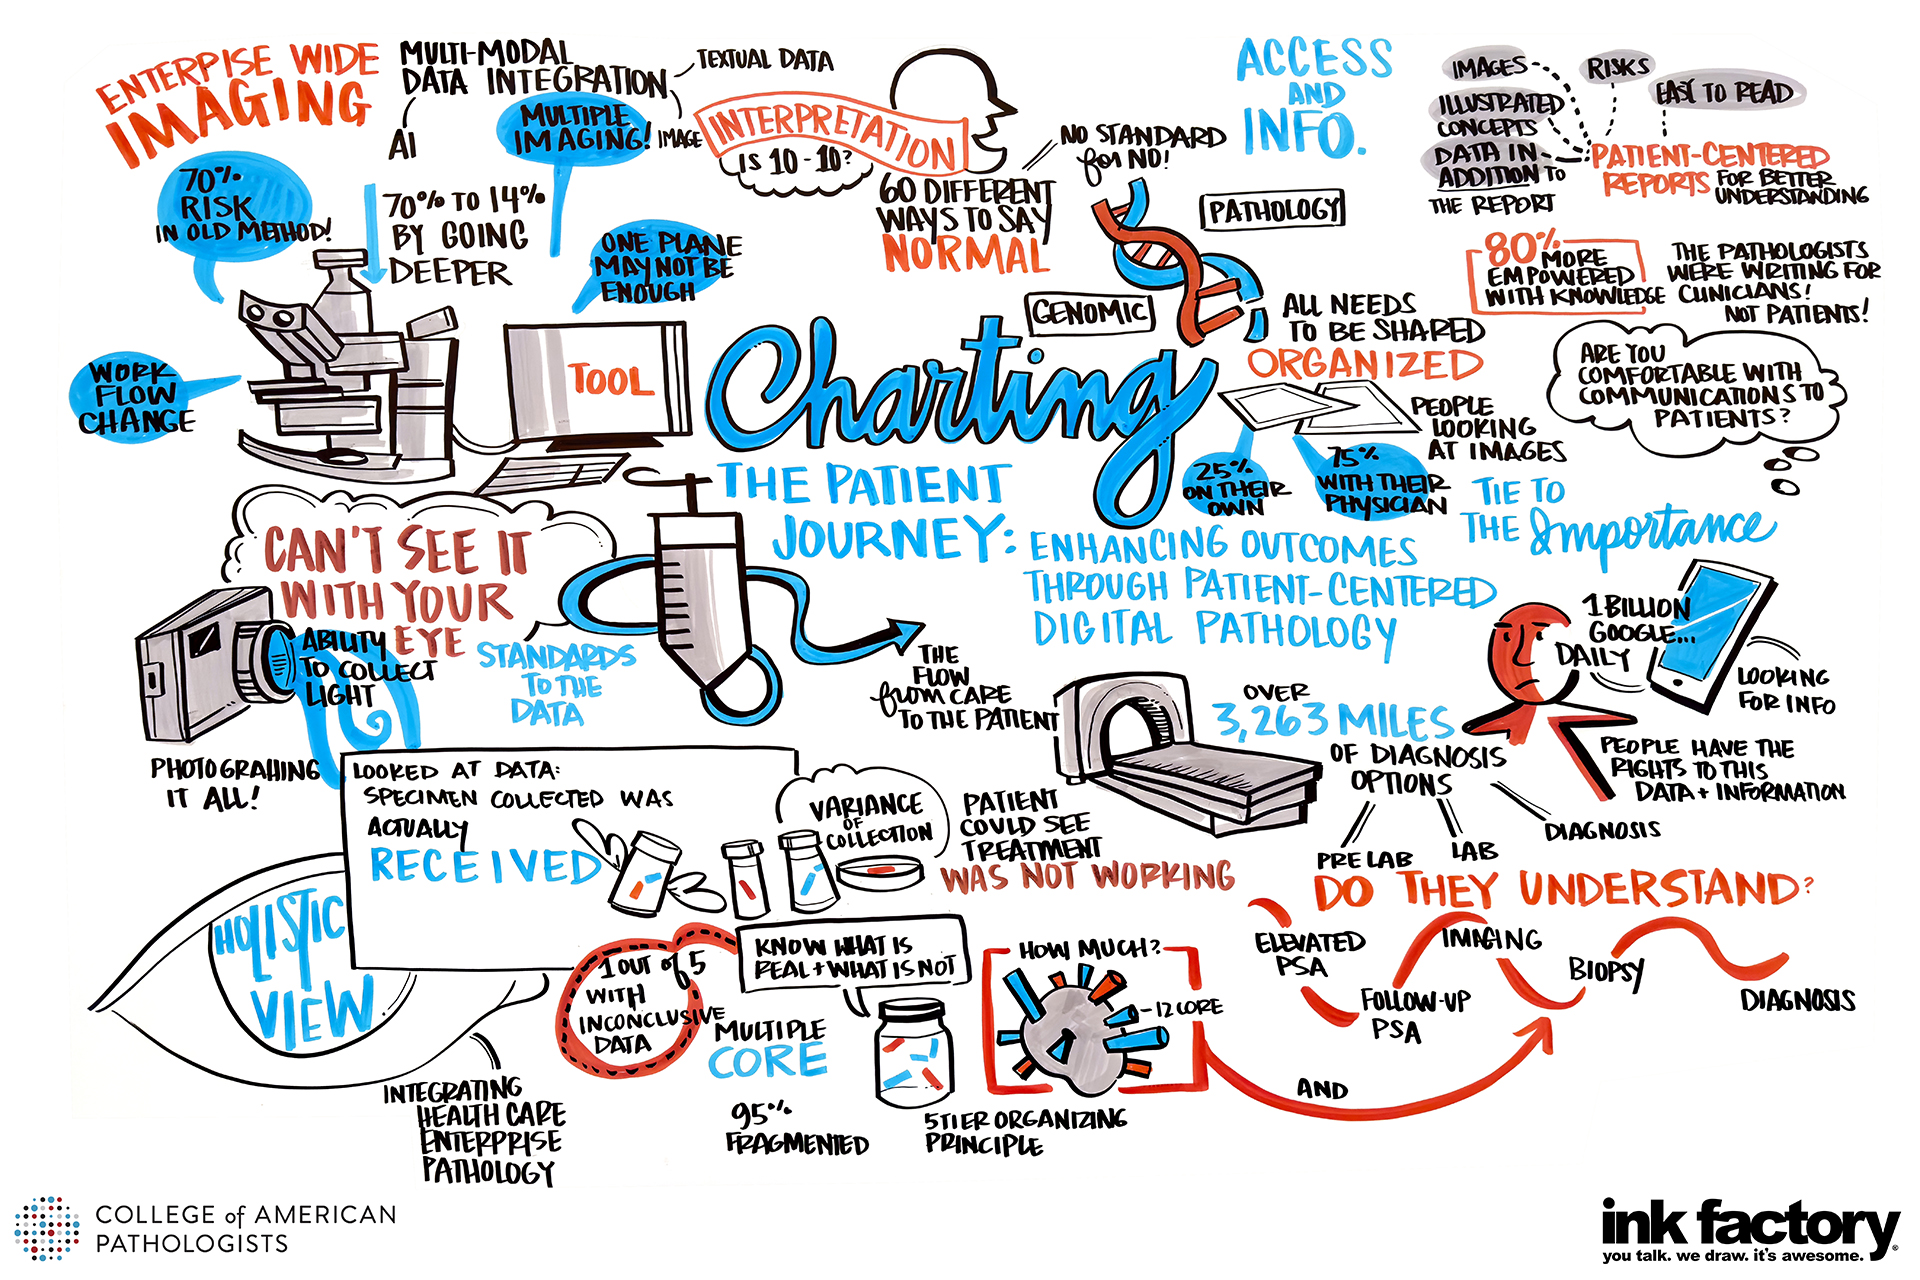 ENTERPISE WIDE
IMAGING
MULTI-MODAL
DATA INTEGRATION
TEXTUAL DATA
IMAGE
AI
MULTIPLE
IMAGING!
70%
RISK
IN OLD METHOD!
70% TO 14%
BY GOING
DEEPER
ONE PLANE
MAY NOT BE
ENOUGH
WORK
FLOW
CHANGE
TOOL
INTERPRETATION
IS 10-10?
60 DIFFERENT
WAYS TO SAY
NORMAL
NO STANDARD
for NO!
ACCESS
AND
INFO.
PATHOLOGY
GENOMIC
IMAGES
RISKS
EASY TO READ
ILLUSTRATED
CONCEPTS
DATA IN
ADDITION TO
THE REPORT
PATIENT-CENTERED
REPORTS FOR BETTER
UNDERSTANDING
80%
MORE
EMPOWERED
WITH KNOWLEDGE
THE PATHOLOGISTS
WERE WRITING FOR
CLINICIANS!
NOT PATIENTS!
ARE YOU
COMFORTABLE WITH
COMMUNICATIONS TO
PATIENTS?
ALL NEEDS
TO BE SHARED
ORGANIZED
PEOPLE
LOOKING
AT IMAGES
25%
ON THEIR
OWN
75%
WITH THEIR
PHYSICIAN
TIE TO
THE Importance
Charting
THE PATIENT
JOURNEY:
ENHANCING OUTCOMES
THROUGH PATIENT-CENTERED
DIGITAL PATHOLOGY
CAN'T SEE IT
WITH YOUR
EYE
ABILITY
TO COLLECT
LIGHT
PHOTOGRAHING
IT ALL!
STANDARDS
TO THE
DATA
THE
FLOW
from CARE
TO THE PATIENT
1 BILLION
GOOGLE...
DAILY
LOOKING
FOR INFO
PEOPLE HAVE THE
RIGHTS TO THIS
DATA + INFORMATION
OVER
3,263 MILES
OF DIAGNOSIS
OPTIONS
PRE LAB
LAB
DIAGNOSIS
LOOKED AT DATA:
SPECIMEN COLLECTED WAS
ACTUALLY
RECEIVED
VARIANCE
OF
COLLECTION
PATIENT
COULD SEE
TREATMENT
WAS NOT WORKING
DO THEY UNDERSTAND?
ELEVATED
PSA
FOLLOW-UP
PSA
IMAGING
BIOPSY
DIAGNOSIS
AND
HOLISTIC
VIEW
INTEGRATING
HEALTH CARE
ENTERPRISE
PATHOLOGY
1 OUT of 5
WITH
INCONCLUSIVE
DATA
KNOW WHAT IS
REAL + WHAT IS NOT
MULTIPLE
CORE
95%
FRAGMENTED
5 TIER ORGANIZING
PRINCIPLE
HOW MUCH?
-12 CORE
COLLEGE of AMERICAN
PATHOLOGISTS
ink factory
you talk. we draw. it's awesome.